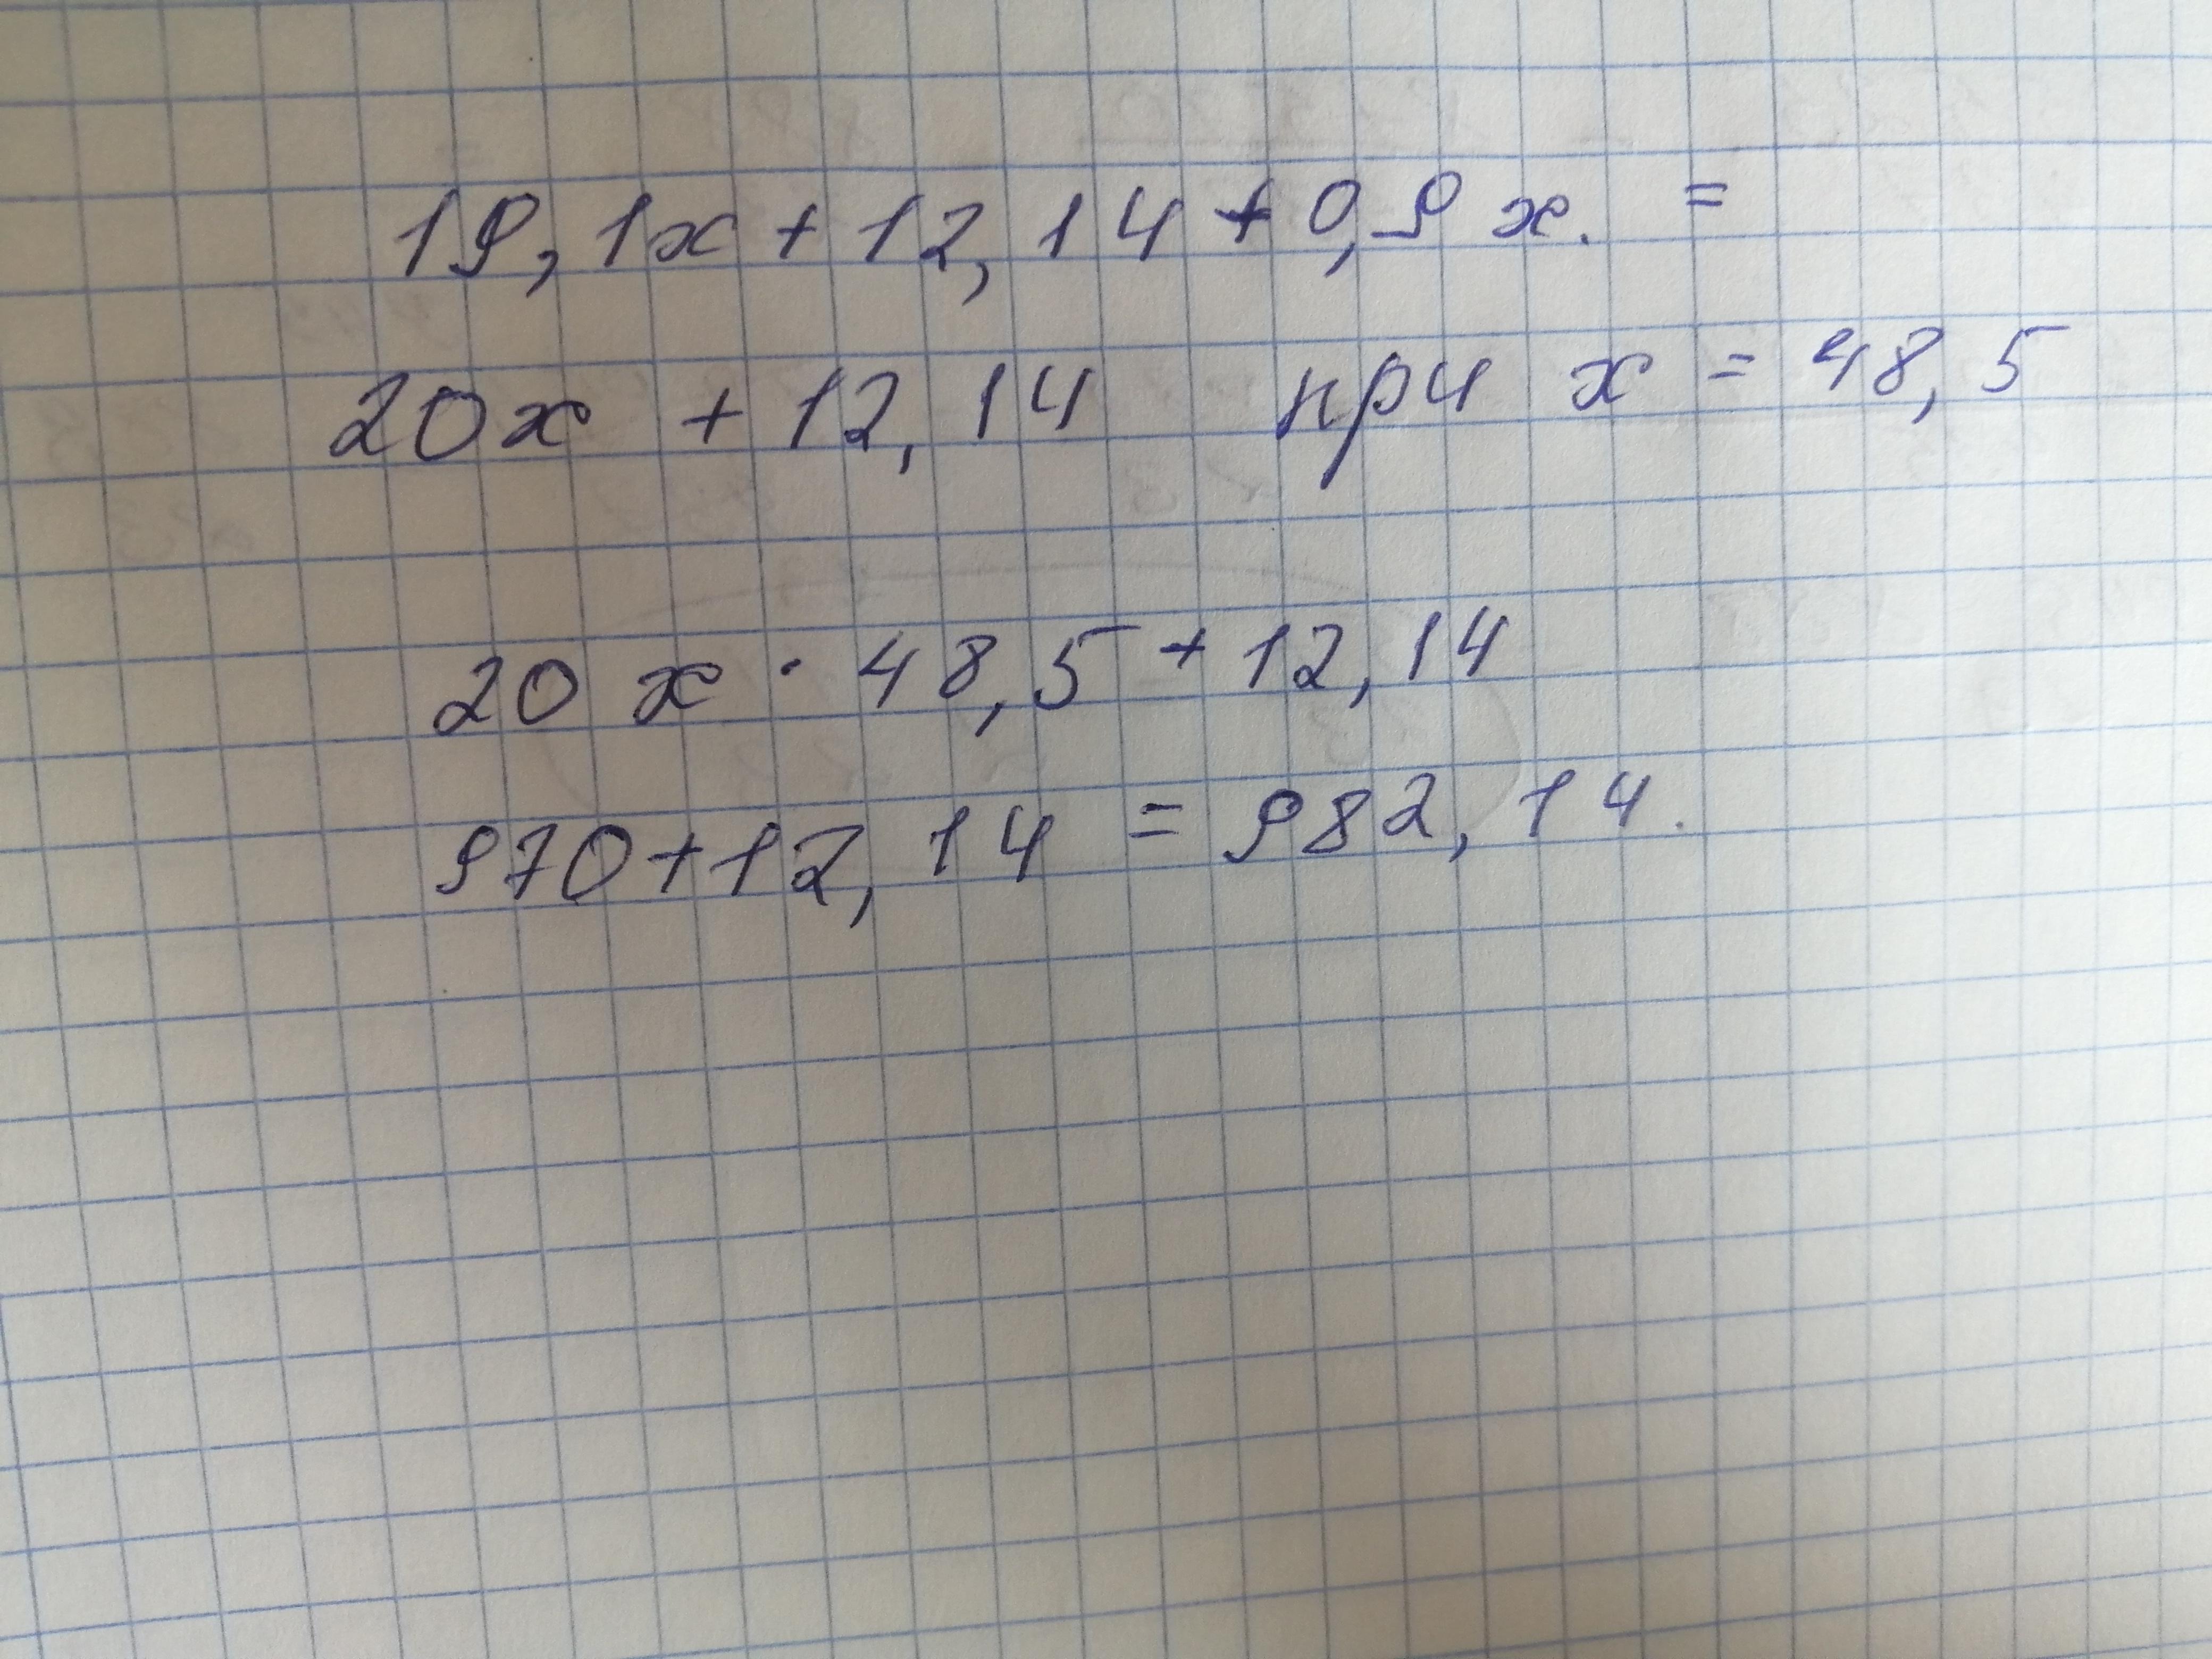 19,1x + 12,14 + 0,9x. =
20x + 12,14 при x = 48,5
20x · 48,5 + 12,14
970 + 12,14 = 982,14.